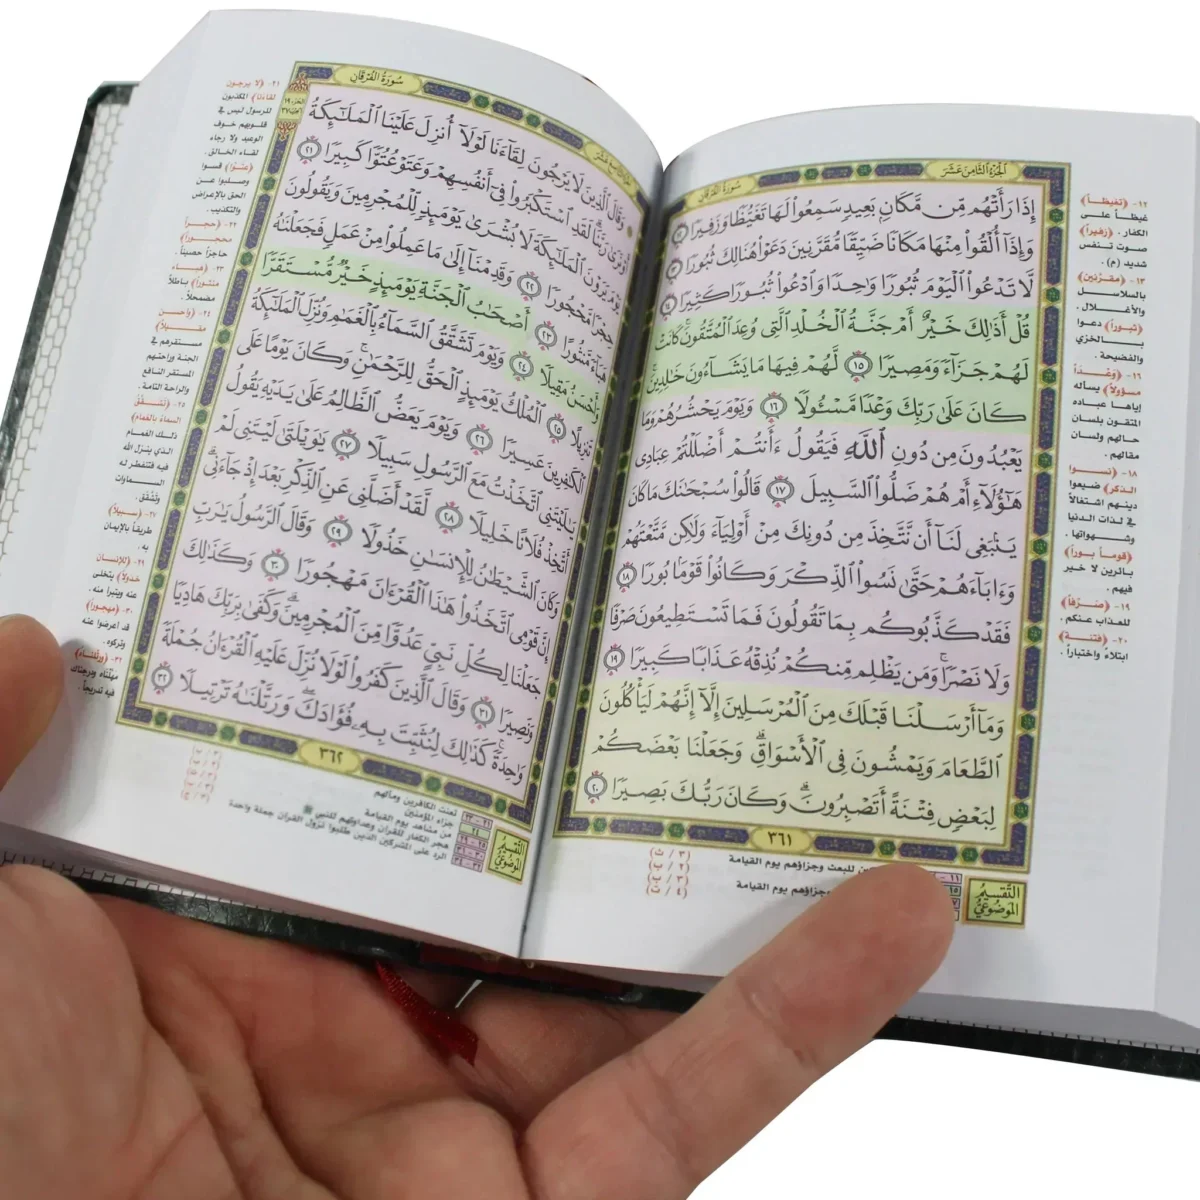 الجُزْءُ الثَّامِنَ عَشَرَ
سُورَةُ الفُرْقَانِ
إِذَا رَأَتْهُم مِّن مَّكَانٍ بَعِيدٍ سَمِعُوا۟ لَهَا تَغَيُّظًا وَزَفِيرًا ١٢
وَإِذَآ أُلْقُوا۟ مِنْهَا مَكَانًا ضَيِّقًا مُّقَرَّنِينَ دَعَوْا۟ هُنَالِكَ ثُبُورًا ١٣
لَّا تَدْعُوا۟ ٱلْيَوْمَ ثُبُورًا وَٰحِدًا وَٱدْعُوا۟ ثُبُورًا كَثِيرًا ١٤
قُلْ أَذَٰلِكَ خَيْرٌ أَمْ جَنَّةُ ٱلْخُلْدِ ٱلَّتِى وُعِدَ ٱلْمُتَّقُونَ ۚ كَانَتْ
لَهُمْ جَزَآءً وَمَصِيرًا ١٥ لَّهُمْ فِيهَا مَا يَشَآءُونَ خَٰلِدِينَ ۚ
كَانَ عَلَىٰ رَبِّكَ وَعْدًا مَّسْـُٔولًا ١٦ وَيَوْمَ يَحْشُرُهُمْ وَمَا
يَعْبُدُونَ مِن دُونِ ٱللَّهِ فَيَقُولُ ءَأَنتُمْ أَضْلَلْتُمْ عِبَادِى
هَٰٓؤُلَآءِ أَمْ هُمْ ضَلُّوا۟ ٱلسَّبِيلَ ١٧ قَالُوا۟ سُبْحَٰنَكَ مَا كَانَ
يَنۢبَغِى لَنَآ أَن نَّتَّخِذَ مِن دُونِكَ مِنْ أَوْلِيَآءَ وَلَٰكِن مَّتَّعْتَهُمْ
وَءَابَآءَهُمْ حَتَّىٰ نَسُوا۟ ٱلذِّكْرَ وَكَانُوا۟ قَوْمًۢا بُورًا ١٨
فَقَدْ كَذَّبُوكُم بِمَا تَقُولُونَ فَمَا تَسْتَطِيعُونَ صَرْفًا
وَلَا نَصْرًا ۚ وَمَن يَظْلِم مِّنكُمْ نُذِقْهُ عَذَابًا كَبِيرًا ١٩
وَمَآ أَرْسَلْنَا قَبْلَكَ مِنَ ٱلْمُرْسَلِينَ إِلَّآ إِنَّهُمْ لَيَأْكُلُونَ
ٱلطَّعَامَ وَيَمْشُونَ فِى ٱلْأَسْوَاقِ ۗ وَجَعَلْنَا بَعْضَكُمْ
لِبَعْضٍ فِتْنَةً أَتَصْبِرُونَ ۗ وَكَانَ رَبُّكَ بَصِيرًا ٢٠
٣٦١
١٢- (تغيظاً)
غيظاً على
الكفار. (زفيراً)
صوت تنفس
شديد (م).
١٣- (مقرنين)
بالسلاسل
والأغلال.
(ثبوراً) دعوا
بالخزي
والفضيحة.
١٦- (وعْداً
مسؤولاً) يسأله
إياها عباده
المتقون بلسان
حالهم ولسان
مقالهم.
١٨- (نسوا
الذكر) ضيعوا
دينهم اشتغالاً
في لذات الدنيا
وشهواتها.
(قوماً بوراً)
بائرين لا خير
فيهم.
١٩- (صرْفاً)
للعذاب عنكم.
٢٠- (فتنة)
ابتلاءً واختباراً.
التقسيم
الموضوعي
ين للبعث وجزاؤهم يوم القيامة
وجزاؤهم يوم القيامة
سُورَةُ الفُرْقَانِ
وَقَالَ ٱلَّذِينَ لَا يَرْجُونَ لِقَآءَنَا لَوْلَآ أُنزِلَ عَلَيْنَا ٱلْمَلَٰٓئِكَةُ
أَوْ نَرَىٰ رَبَّنَا ۗ لَقَدِ ٱسْتَكْبَرُوا۟ فِىٓ أَنفُسِهِمْ وَعَتَوْ عُتُوًّا كَبِيرًا ٢١
يَوْمَ يَرَوْنَ ٱلْمَلَٰٓئِكَةَ لَا بُشْرَىٰ يَوْمَئِذٍ لِّلْمُجْرِمِينَ وَيَقُولُونَ
حِجْرًا مَّحْجُورًا ٢٢ وَقَدِمْنَآ إِلَىٰ مَا عَمِلُوا۟ مِنْ عَمَلٍ فَجَعَلْنَٰهُ
هَبَآءً مَّنثُورًا ٢٣ أَصْحَٰبُ ٱلْجَنَّةِ يَوْمَئِذٍ خَيْرٌ مُّسْتَقَرًّا
وَأَحْسَنُ مَقِيلًا ٢٤ وَيَوْمَ تَشَقَّقُ ٱلسَّمَآءُ بِٱلْغَمَٰمِ وَنُزِّلَ ٱلْمَلَٰٓئِكَةُ
تَنزِيلًا ٢٥ ٱلْمُلْكُ يَوْمَئِذٍ ٱلْحَقُّ لِلرَّحْمَٰنِ ۚ وَكَانَ يَوْمًا عَلَى
ٱلْكَٰفِرِينَ عَسِيرًا ٢٦ وَيَوْمَ يَعَضُّ ٱلظَّالِمُ عَلَىٰ يَدَيْهِ يَقُولُ
يَٰلَيْتَنِى ٱتَّخَذْتُ مَعَ ٱلرَّسُولِ سَبِيلًا ٢٧ يَٰوَيْلَتَىٰ لَيْتَنِى لَمْ
أَتَّخِذْ فُلَانًا خَلِيلًا ٢٨ لَّقَدْ أَضَلَّنِى عَنِ ٱلذِّكْرِ بَعْدَ إِذْ جَآءَنِى ۗ
وَكَانَ ٱلشَّيْطَٰنُ لِلْإِنسَٰنِ خَذُولًا ٢٩ وَقَالَ ٱلرَّسُولُ يَٰرَبِّ
إِنَّ قَوْمِى ٱتَّخَذُوا۟ هَٰذَا ٱلْقُرْءَانَ مَهْجُورًا ٣٠ وَكَذَٰلِكَ
جَعَلْنَا لِكُلِّ نَبِىٍّ عَدُوًّا مِّنَ ٱلْمُجْرِمِينَ ۗ وَكَفَىٰ بِرَبِّكَ هَادِيًا
وَنَصِيرًا ٣١ وَقَالَ ٱلَّذِينَ كَفَرُوا۟ لَوْلَا نُزِّلَ عَلَيْهِ ٱلْقُرْءَانُ جُمْلَةً
وَٰحِدَةً ۚ كَذَٰلِكَ لِنُثَبِّتَ بِهِۦ فُؤَادَكَ ۖ وَرَتَّلْنَٰهُ تَرْتِيلًا ٣٢
٣٦٢
٢١- (لا يرجون
لقاءنا) المكذبون
للرسول ليس في
قلوبهم خوف
الوعيد ولا رجاء
لقاء الخالق.
(عتوا) قسوا
وصلبوا عن
الحق بالإعراض
والتكذيب.
٢٢- (حجراً
محجوراً)
حاجزاً حصيناً.
٢٣- (هباء
منثوراً) باطلاً
مضمحلاً.
٢٤- (وأحسن
مقيلاً)
مستقرهم في
الجنة وراحتهم
المستقر النافع
والراحة التامة.
٢٥- (تشقق
السماء بالغمام)
ذلك الغمام
الذي ينزل الله
فيه فتنفطر له
السماوات
وتشقق.
٢٧- (سبيلاً)
طريقاً بالإيمان
به.
٢٩- (للإنسان
خذولاً) يتخلى
عنه ويتبرأ منه.
٣٠- (مهجوراً)
قد أعرضوا عنه
وتركوه.
٣٢- (ورتلناه)
مهلناه ودرجناك
فيه تدريجاً.
التقسيم
الموضوعي
تعنت الكافرين ومآلهم
جزاء المؤمنين
من مشاهد يوم القيامة
هجر الكفار للقرآن وعداوتهم للنبي ﷺ
الرد على المشركين الذين طلبوا نزول القرآن جملة واحدة